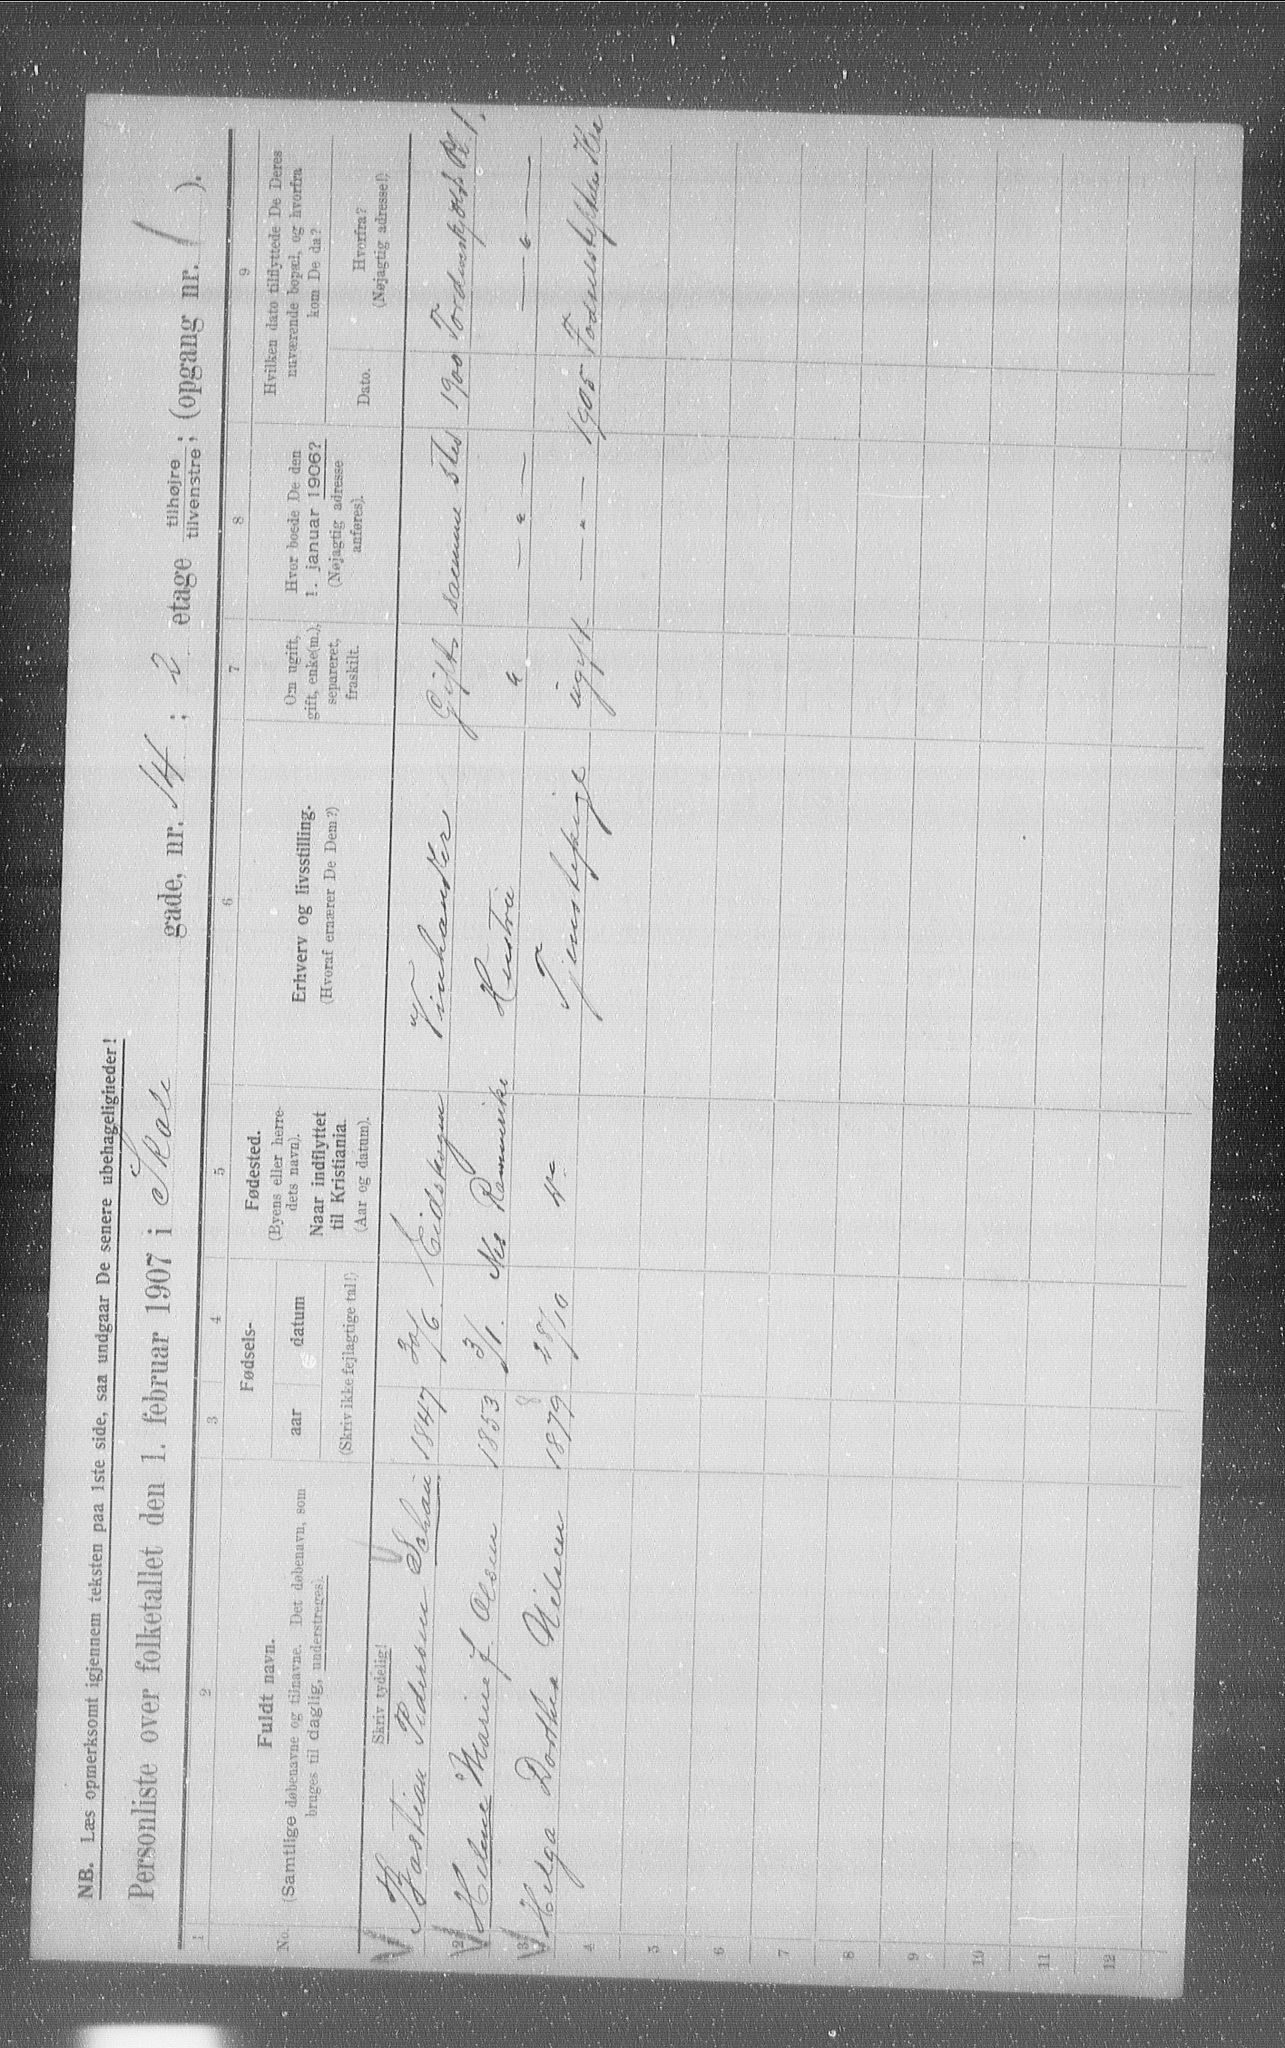 NB. Læs opmerksomt igjennem teksten paa 1ste side, saa undgaar De senere ubehageligheder!
Personliste over folketallet den 1. februar 1907 i Skole gade, nr. 14 ; 2 etage tilhøjre tilvenstre; (opgang nr. / ).
1 2 3 4 5 6 7 8 9
No.
Fuldt navn.
(Samtlige døbenavne og tilnavne. Det døbenavn, som
bruges til daglig, understreges).
Skriv tydelig!
Fødsels-
aar datum
(Skriv ikke fejlagtige tal!)
Fødested.
(Byens eller herre-
dets navn).
Naar indflyttet
til Kristiania.
(Aar og datum).
Erhverv og livsstilling.
(Hvoraf ernærer De Dem?)
Om ugift,
gift, enke(m.),
separeret,
fraskilt.
Hvor boede De den
1. januar 1906?
(Nøjagtig adresse
anføres).
Hvilken dato tilflyttede De Deres
nuværende bopæl, og hvorfra
kom De da?
Dato.
Hvorfra?
(Nøjagtig adresse!)
1 Bastian Pedersen 1847 30/6 Eidskogen Vinhandler Gift samme sted 1900 Tordenskjolds Pl. 1.
2 Helene Marie f. Olsen 1853 3/1. Nes Romerike Hustru " — " — — " —
3 Helga Dorthea Nilsen 1879 8 28/10 Tjenstepige ugift — " — 1905
4
5
6
7
8
9
10
11
12